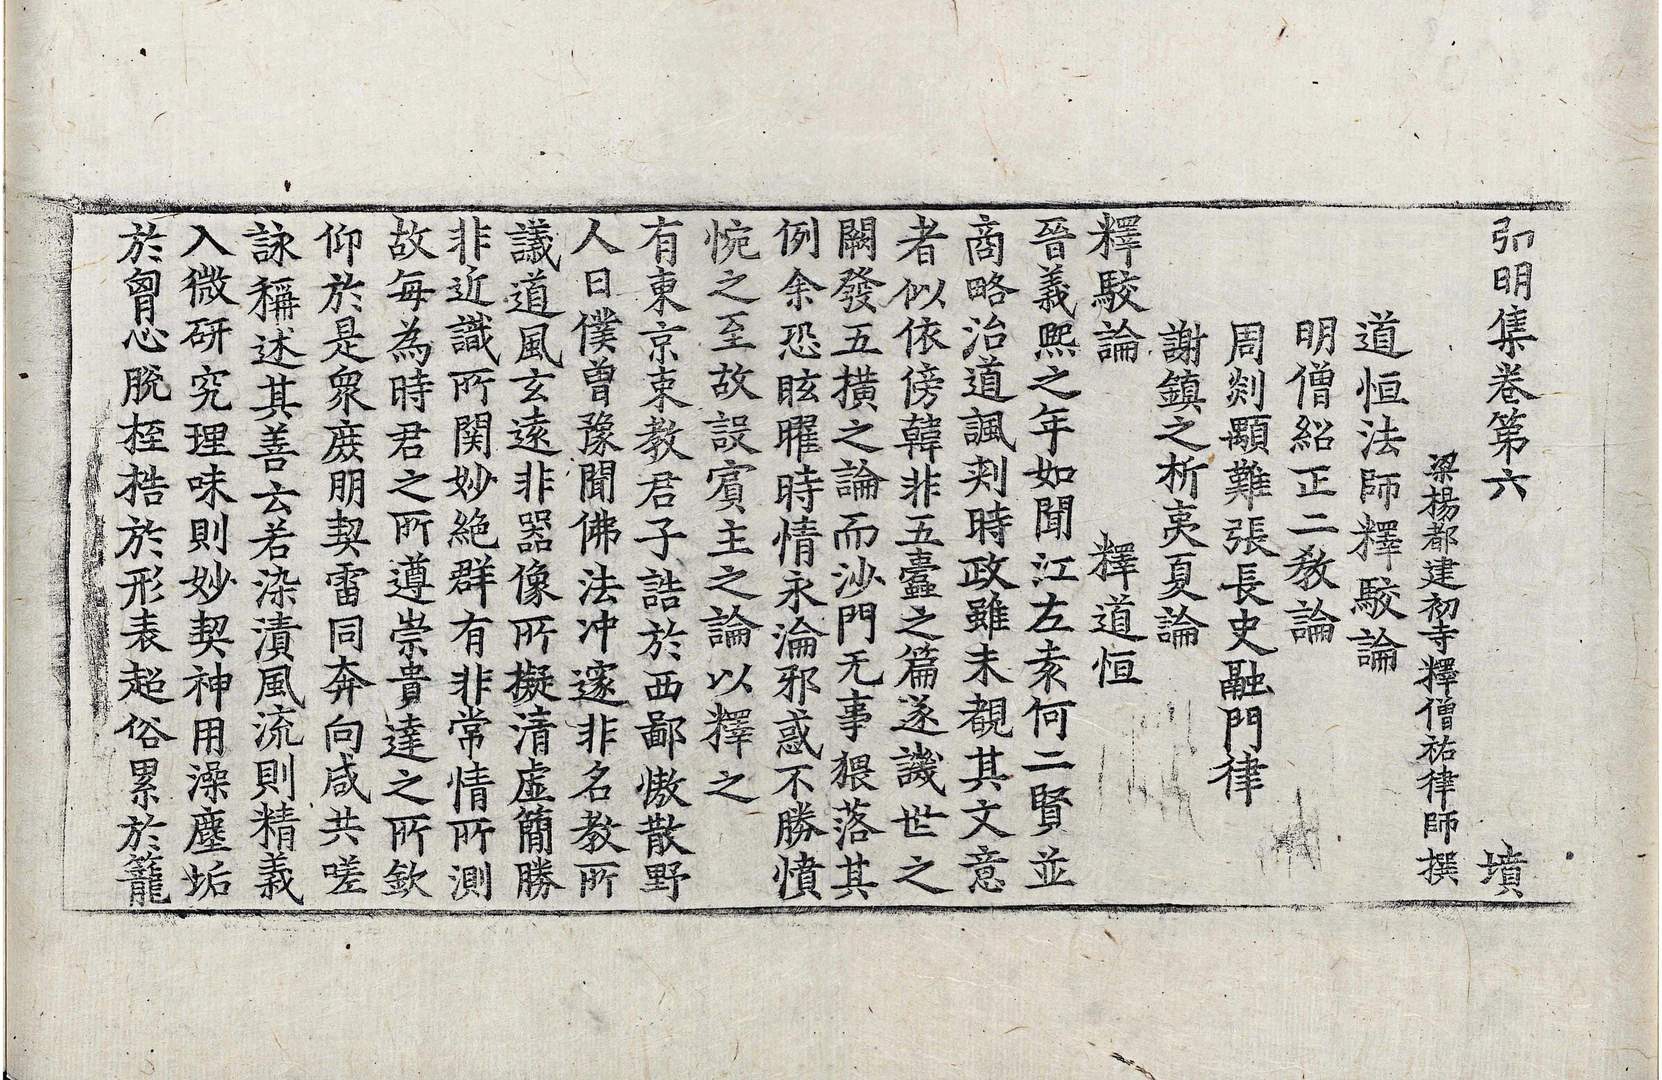 弘明集卷第六 墳
梁楊都建初寺釋僧祐律師撰
道恒法師釋駮論
明僧紹正二教論
周剡顒難張長史融門律
謝鎮之析夷夏論
釋駮論 釋道恒
晉義熙之年如聞江左袁何二賢並
商略治道諷刾時政雖未覩其文意
者似依傍韓非五蠧之篇遂譏世之
闕發五横之論而沙門无事猥落其
例余恐眩曜時情永淪邪惑不勝憤
惋之至故設賓主之論以釋之
有東京束教君子詰於西鄙慠散野
人曰僕曾豫聞佛法冲邃非名教所
議道風玄遠非器像所擬清虛簡勝
非近識所関妙絶群有非常情所測
故每為時君之所遵崇貴達之所欽
仰於是衆庻朋契雷同奔向咸共嗟
詠稱述其善云若染漬風流則精義
入微研究理味則妙契神用澡塵垢
於胷心脫桎梏於形表超俗累於籠